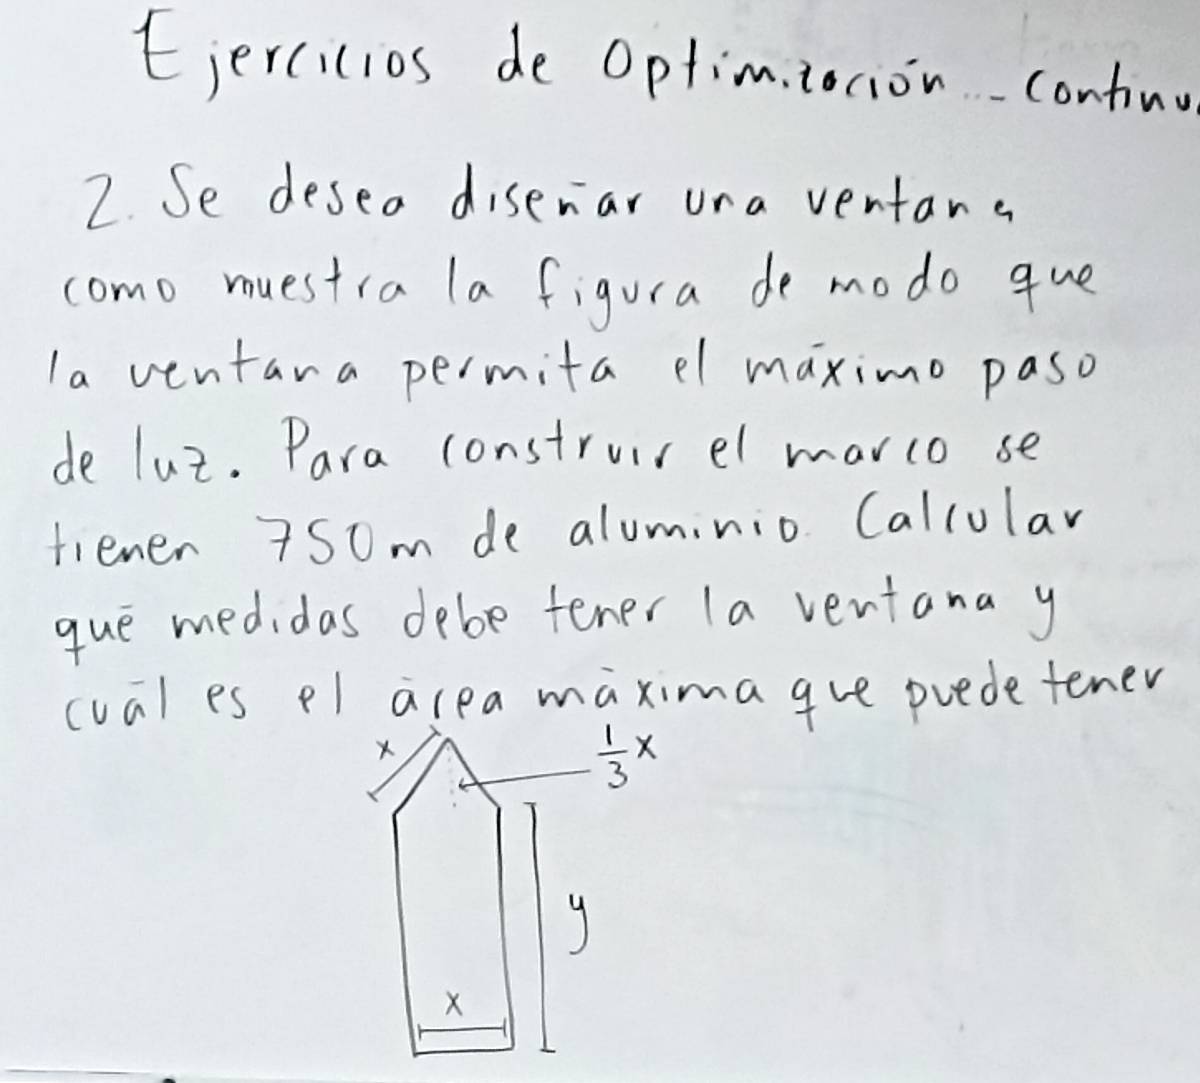 Ejercicios de Optimización... continu
2. Se desea diseñar una ventana
como muestra la figura de modo que
la ventana permita el máximo paso
de luz. Para construir el marco se
tienen 750m de aluminio. Calcular
qué medidas debe tener la ventana y
cuál es el área máxima que puede tener
x
1/3 x
y
x